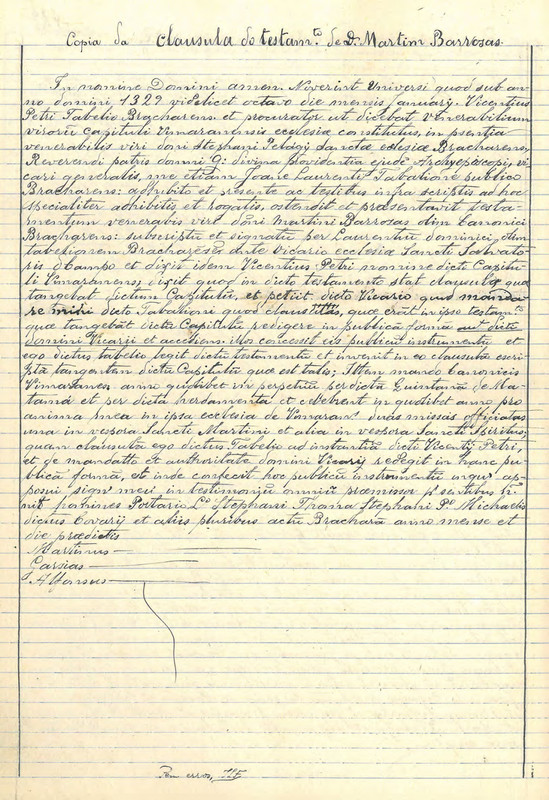 Copia da clausula do testam.to de D. Martim Barrosas.
In nomine Domini amen. Noverint Universi quod sub an-
no domini 1329 videlicet octavo die mensis Januarij. Vicentius
Petri Tabelio Bracharens. et procuratur ut dicebat venerabilium
virorū capituli Vimaranensis ecclesiæ constitutus, in psentia
venerabilis viri doni Stephani Pelagij sanctæ eclesiæ Bracharens,
Reverendi patris domni G: divina providentia ejudē Archyepicopi, vi-
cari generalis, me etiam Joane Laurentij Tabalione publico
Bracharens: adhibito et presente ac testibus infra scriptis ad hoc
specialiter adhibitis et rogatis, ostendit et præsentavit testa-
mentum venerabis viri doni Martini Barrosas olim Canonici
Bracharens: subscriptū et signatū per Laurentiū dominici olim
tabelionem Bracharēsēs ante Vicariū ecclesiæ Sancti Salvato
ris do campo et dixit idem Vicentius Petri nomine dicto Capitu-
li Vimaranens, dixit quod in dicto testamento stat clausula quæ
tangebat dictum Capitulū, et petiit dicto Vicario quod manda-
re mihi dicto Tabalioni quod clausulas, quæ erāt in ipso testam.to
quæ tangebāt dictū Capitulū redigere in publicā formā aut dicto
domini Vicarij et accedens illos concesset eis publicū instrumentū et
ego dictus tabelio legit dictū testamentū et invenit in eo clausulā escri-
ptā tangentem dictū Capitulū quæ est talis; Ittem mando Canonicis
Vimaranes anno quolibet in perpetuū per dictā Quintanā de Ma-
tamá et per dicta herdamenta et celebrent in quolibet anno pro
anima mea in ipsa ecclesia de Vimaran. duas missas officiatas
una in vespora Sancti Martini et alia in vespora Sancti Spiritus;
quam clausulā ego dictus Tabelio ad instantiā dicti Vicentij Petri,
et de mandatto et authoritate domini Vicarij redegit in hanc pu-
blicā formā, et inde confecit hoc publicū instrumentū in quo ap-
posui sign' meū in testimoniū omniū premissor
Portario Stephani Stephani Michaelis
dictus Covarij et aliis pluribus actū Bracharā anno mense et
die prædictis
Martinus
Garsias
Alfonsus